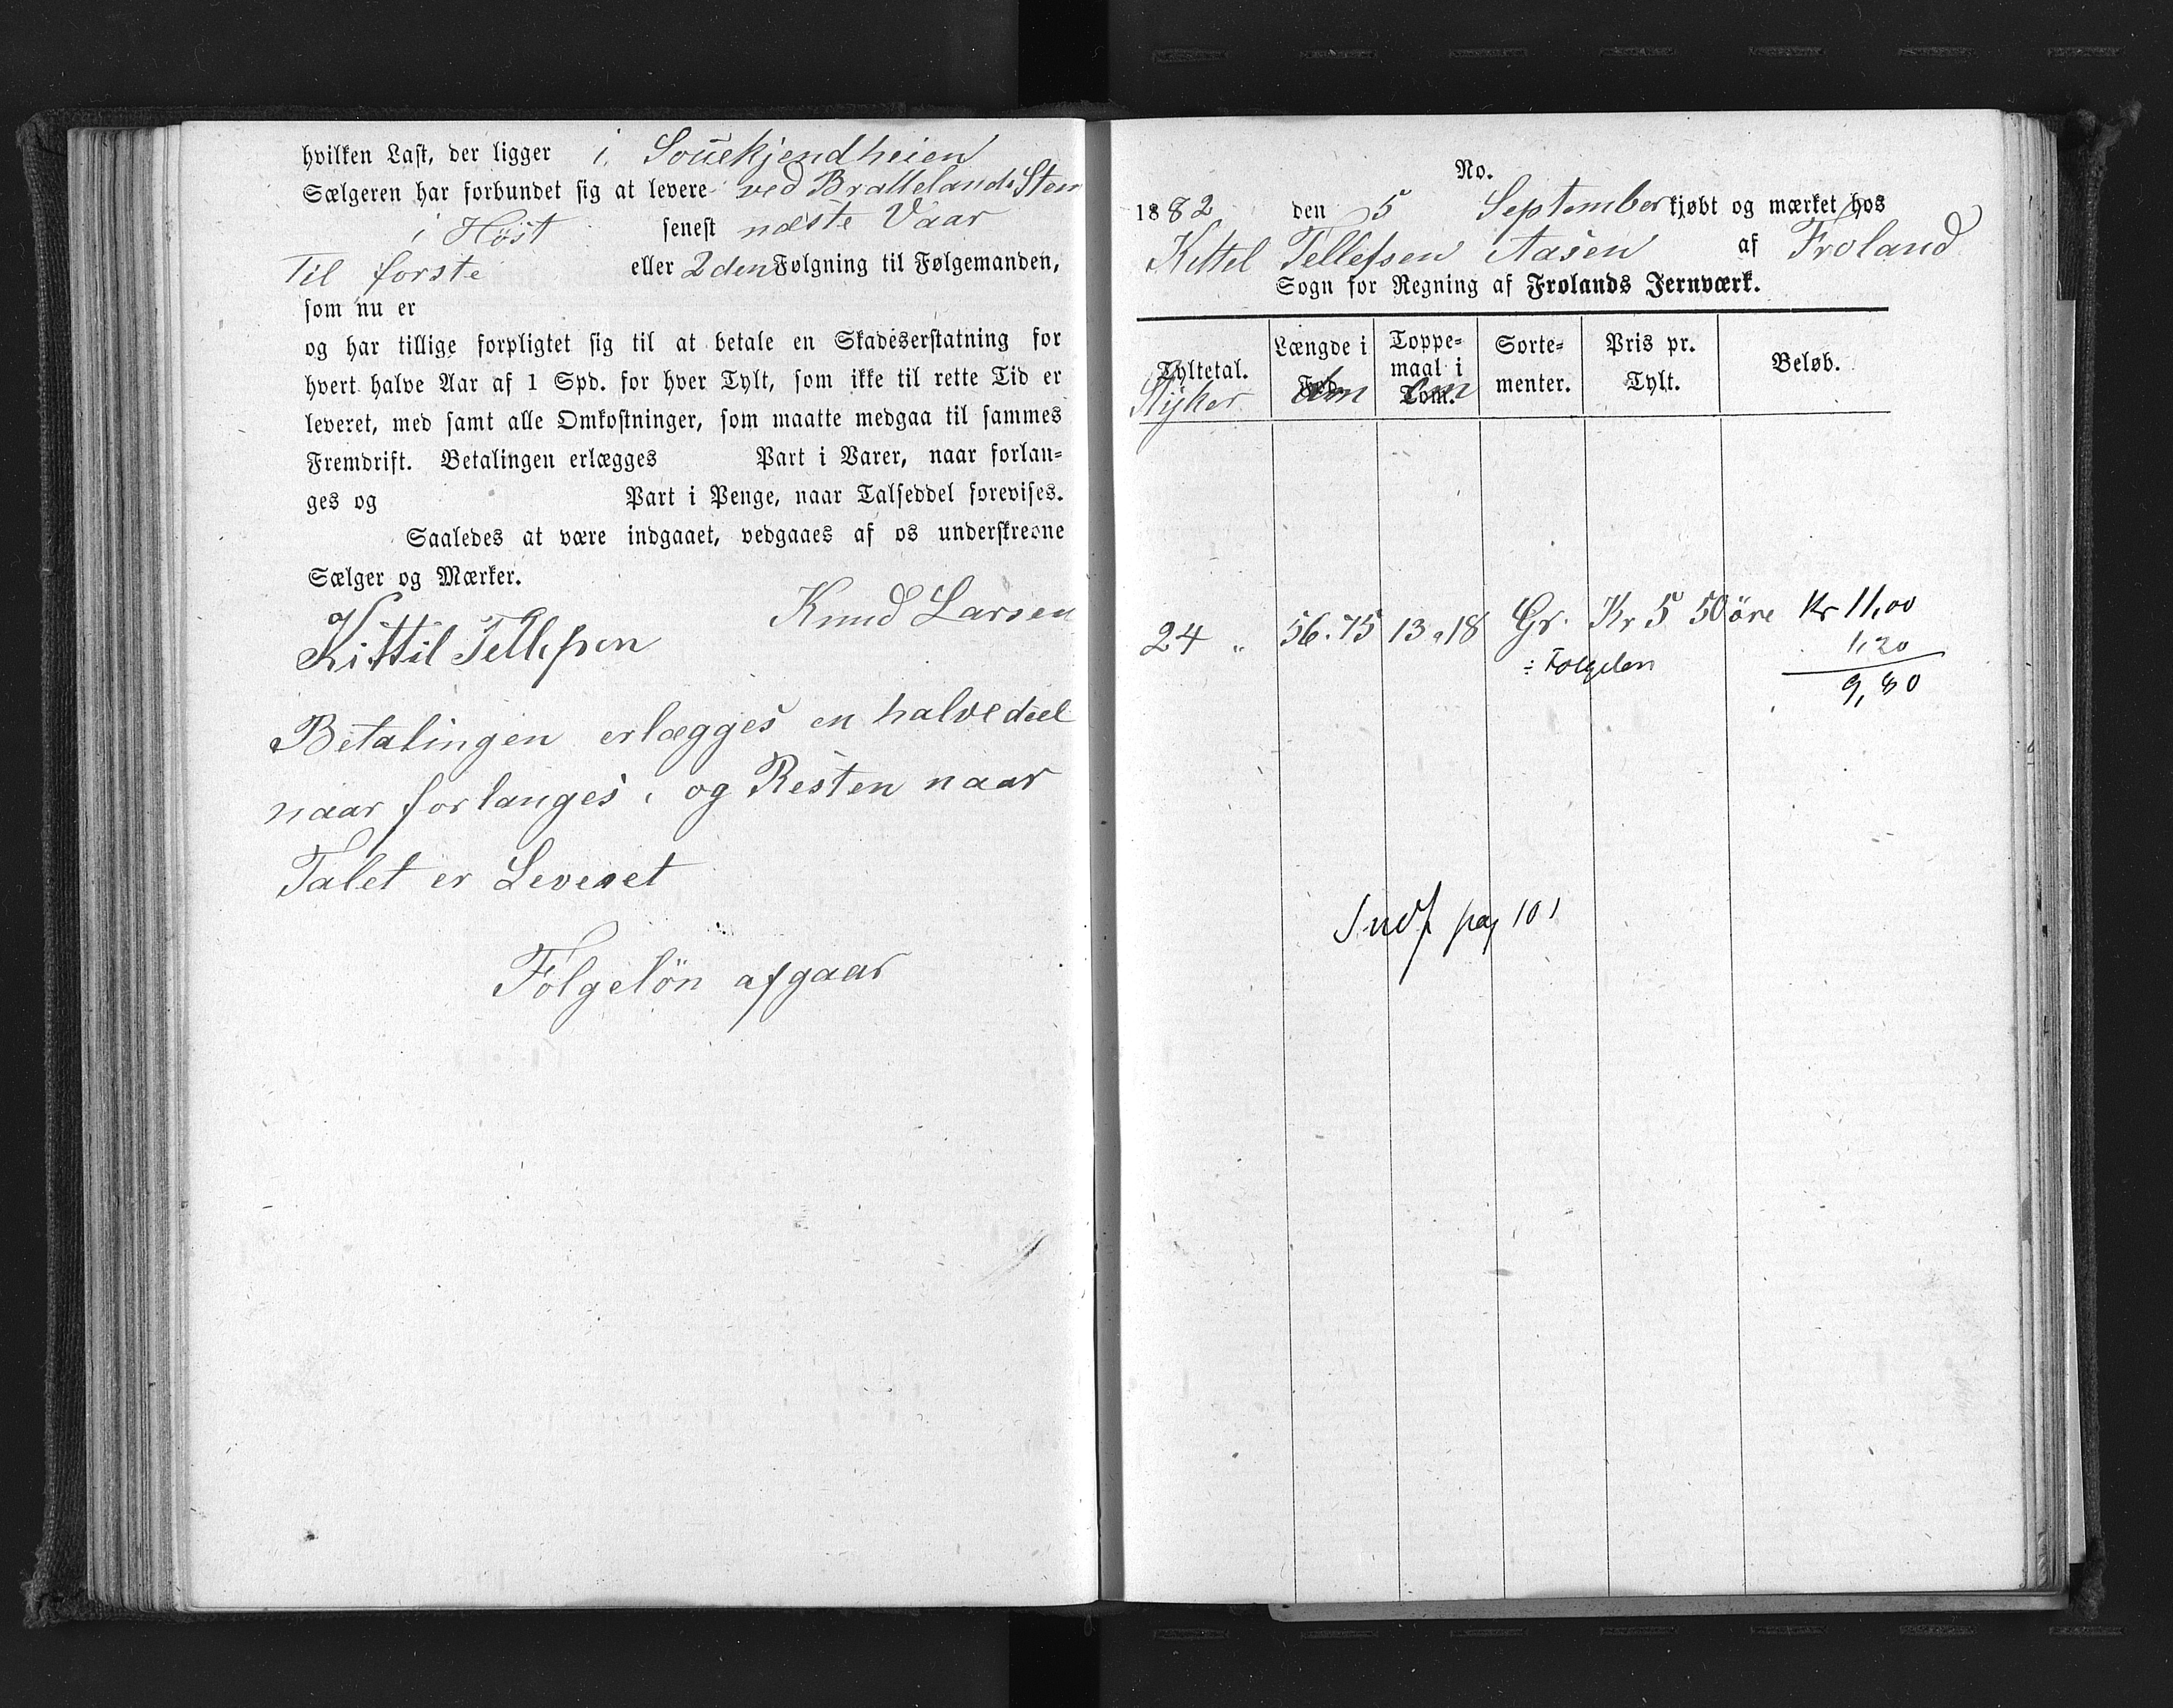 hvilken Last, der ligger i Souekjendheien
Sælgeren har forbundet sig at levere ved Brattelands Sten
i Höst senest næste Vaar
Til forste eller 2den Følgning til Følgemanden,
som nu er
og har tillige forpligtet sig til at betale en Skadeserstatning for
hvert halve Aar af 1 Spd. for hver Tylt, som ikke til rette Tid er
leveret, med samt alle Omkostninger, som maatte medgaa til sammes
Fremdrift. Betalingen erlægges Part i Varer, naar forlan-
ges og Part i Penge, naar Talseddel forevises.
Saaledes at være indgaaet, vedgaaes af os underskrevne
Sælger og Mærker.
Knud Larsen
Kittil Tellefsen
Betalingen erlægges en halvedeel
naar forlanges, og Resten naar
Talet er Leveret
Folgelön afgaar
No.
1882 den 5 September kjøbt og mærket hos
Kittel Tellefsen Aasen af Froland
Sogn for Regning af Frolands Jernværk.
Tyltetal. Længde i Fod. Toppe-maal i Tom. Sorte-menter. Pris pr. Tylt. Beløb.
Styker
24 " 56.75 13 " 18 Gr. Kr 5 50 öre Kr 11,00
÷ Folgeløn 1,20
9,80
Indf pag 101